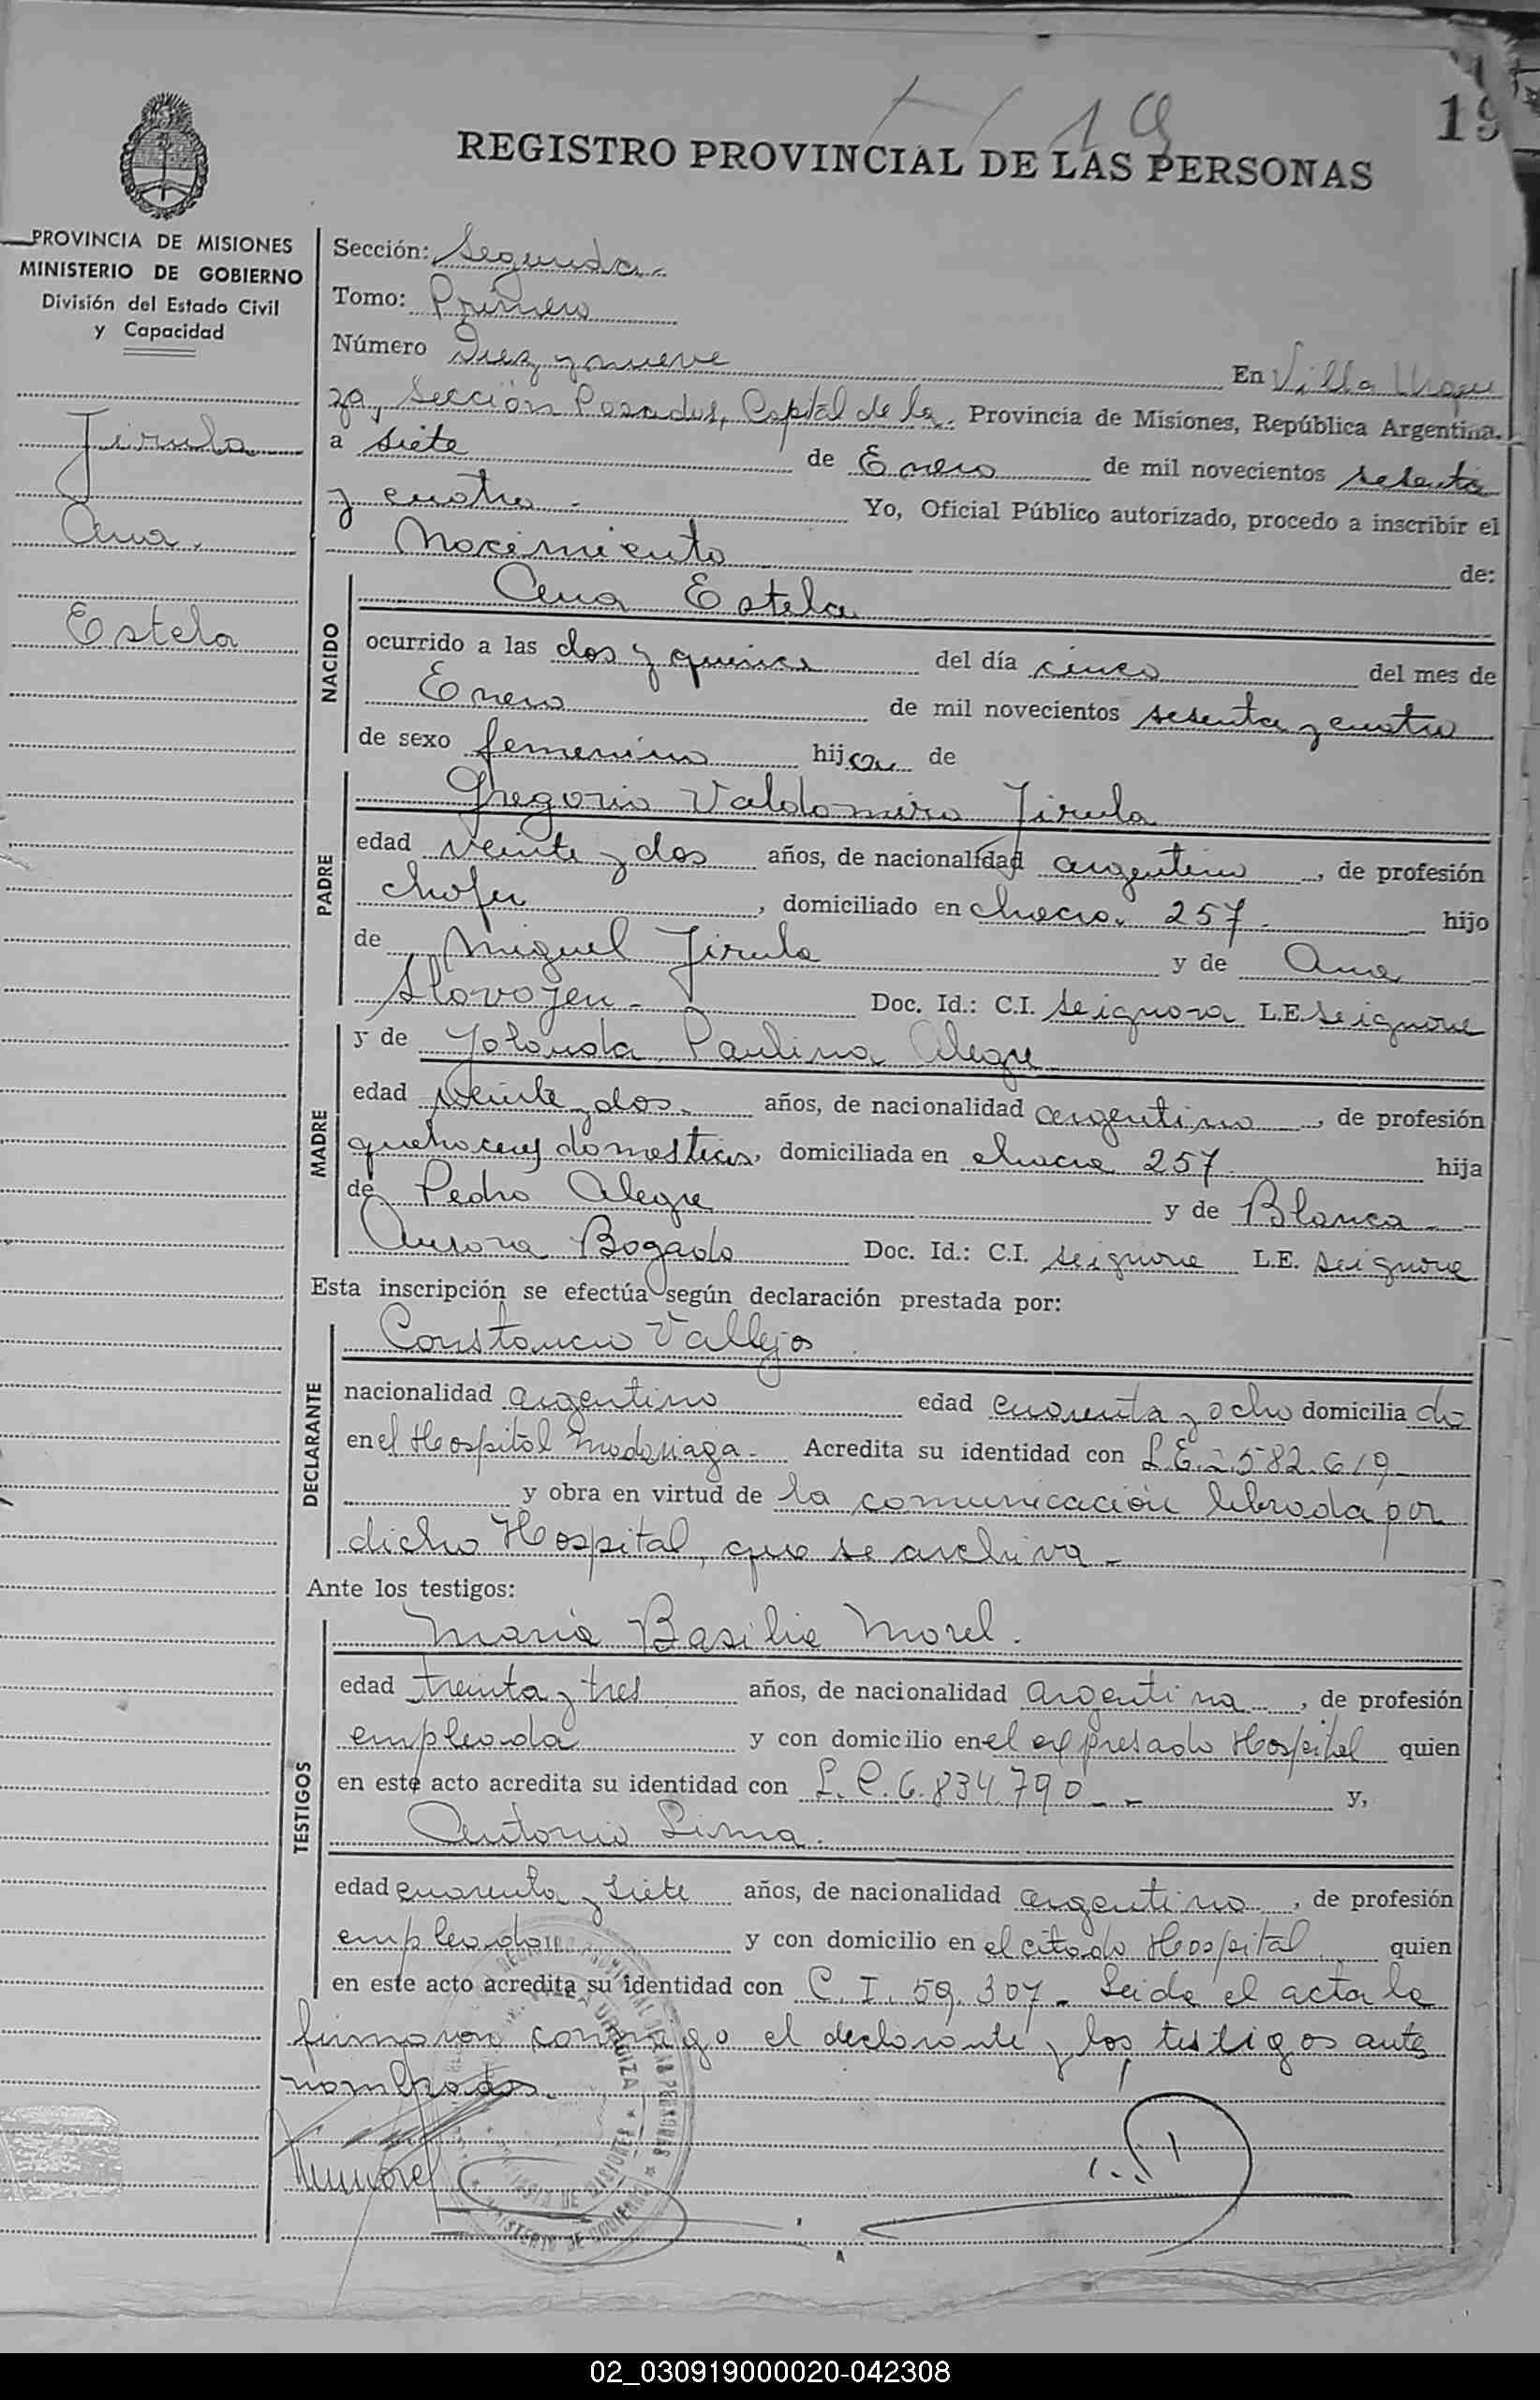 T/19
19
REGISTRO PROVINCIAL DE LAS PERSONAS
PROVINCIA DE MISIONES
MINISTERIO DE GOBIERNO
División del Estado Civil
y Capacidad
Jirula
Ana.
Estela
Sección: Segunda.
Tomo: Primero
Número Diez y nueve En Villa Urqui
za, Sección Posadas, Capital de la. Provincia de Misiones, República Argentina.
a siete de Enero de mil novecientos sesenta
y cuatro. Yo, Oficial Público autorizado, procedo a inscribir el
Nacimiento de:
NACIDO
Ana Estela
ocurrido a las dos y quince del día cinco del mes de
Enero de mil novecientos sesenta y cuatro
de sexo femenino hija de
PADRE
Gregorio Valdomiro Jirula
edad veinte y dos años, de nacionalidad argentino, de profesión
chofer, domiciliado en chacra. 257. hijo
de Miguel Jirula y de Ana
Slovojen. Doc. Id.: C.I. se ignora L.E. se ignora
MADRE
y de Yolanda Paulina Alegre
edad veinte y dos. años, de nacionalidad argentina, de profesión
quehaceres domesticos, domiciliada en chacra 257 hija
de Pedro Alegre y de Blanca
Aurora Bogado Doc. Id.: C.I. se ignora L.E. se ignora
Esta inscripción se efectúa según declaración prestada por:
DECLARANTE
Constancio Vallejos
nacionalidad argentino edad cuarenta y ocho domicilia do
en el Hospital Madariaga. Acredita su identidad con L.E. 2.582.619
y obra en virtud de la comunicación librada por
dicho Hospital, que se archiva.
Ante los testigos:
TESTIGOS
Maria Basilia Morel.
edad treinta y tres años, de nacionalidad argentina, de profesión
empleada y con domicilio en el expresado Hospital quien
en este acto acredita su identidad con L.C. 6.834.790 y,
Antonio Lima.
edad cuarenta y siete años, de nacionalidad argentino, de profesión
empleado y con domicilio en el citado Hospital quien
en este acto acredita su identidad con C.I. 59.307. Leida el acta la
firmaron conmigo el declarante y los testigos ante
nombrados.
02_030919000020-042308